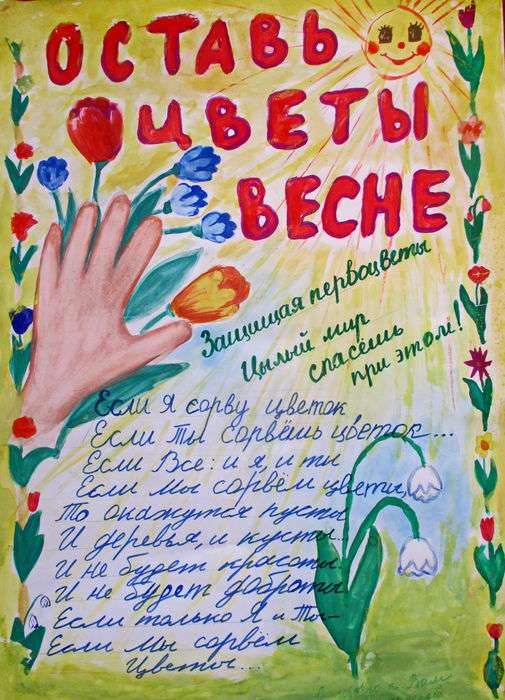 ОСТАВЬ
ЦВЕТЫ
ВЕСНЕ
Защищая первоцветы
Цылый мир
спасёшь
при этом!
Если Я сорву цветок
Если Ты сорвёшь цветок...
Если Все: и я, и ты
Если мы сорвём цветы,
То окажутся пусты
И деревья, и кусты...
И не будет красоты.
И не будет доброты
Если только Я и Ты-
Если Мы сорвём
Цветы...